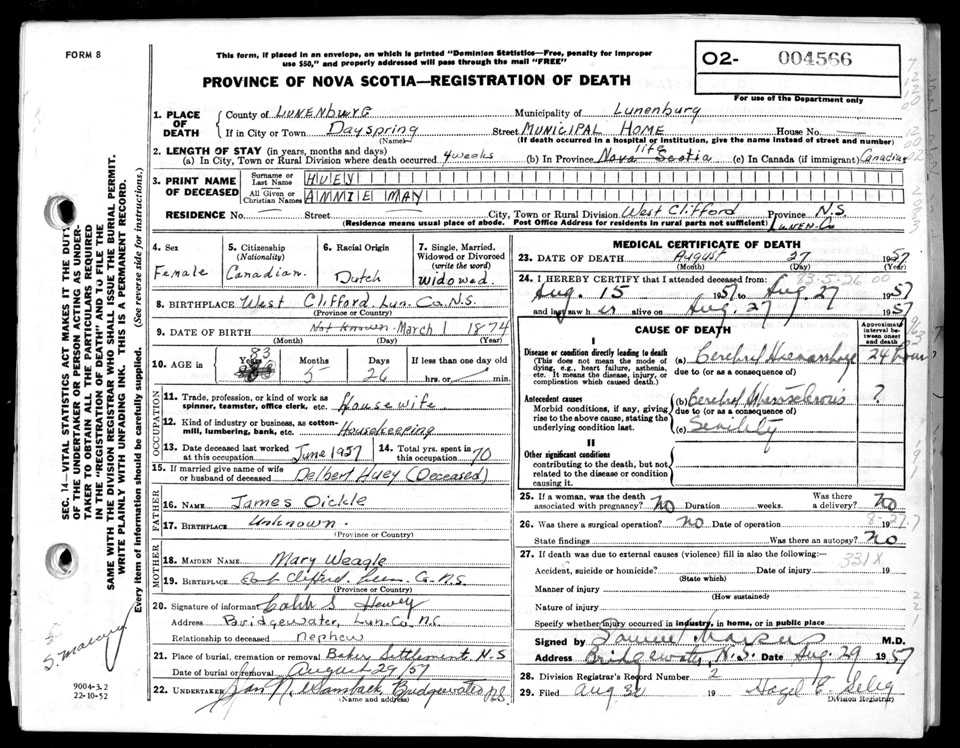 FORM 8
This form, if placed in an envelope, on which is printed "Dominion Statistics—Free, penalty for improper
use $50," and properly addressed will pass through the mail "FREE"
PROVINCE OF NOVA SCOTIA—REGISTRATION OF DEATH
O2- 004566
For use of the Department only
1. PLACE OF DEATH
County of LUNENBURG Municipality of Lunenburg
If in City or Town Dayspring Street MUNICIPAL HOME House No. —
(Name) (If death occurred in a hospital or institution, give the name instead of street and number)
2. LENGTH OF STAY (in years, months and days)
(a) In City, Town or Rural Division where death occurred 4 weeks (b) In Province life Nova Scotia (c) In Canada (if immigrant) Canadian
3. PRINT NAME OF DECEASED
Surname or Last Name HUEY
All Given or Christian Names AMMIE MAY
RESIDENCE No. — Street — City, Town or Rural Division West Clifford Province N.S.
(Residence means usual place of abode. Post Office Address for residents in rural parts not sufficient) LUNEN. Co
4. Sex
Female
5. Citizenship
(Nationality)
Canadian.
6. Racial Origin
Dutch
7. Single, Married, Widowed or Divorced
(write the word)
Widowed.
8. BIRTHPLACE West Clifford. Lun. Co. N.S.
(Province or Country)
9. DATE OF BIRTH Not Known March 1 1874
(Month) (Day) (Year)
10. AGE in
83
Years
Months
5
Days
26
If less than one day old
hrs. or min.
OCCUPATION
11. Trade, profession, or kind of work as
spinner, teamster, office clerk, etc. Housewife
12. Kind of industry or business, as cotton-
mill, lumbering, bank, etc. Housekeeping
13. Date deceased last worked
at this occupation June 1957
14. Total yrs. spent in
this occupation 70
15. If married give name of wife
or husband of deceased Delbert Huey (Deceased)
FATHER
16. NAME James Oickle
17. BIRTHPLACE Unknown.
(Province or Country)
MOTHER
18. MAIDEN NAME Mary Weagle
19. BIRTHPLACE East Clifford. Lun. Co. N.S.
(Province or Country)
20. Signature of informant S Hewey
Address Bridgewater, Lun. Co. N.S.
Relationship to deceased nephew
21. Place of burial, cremation or removal Baker Settlement. N.S
Date of burial or removal August 29/57
22. UNDERTAKER Wamback, Bridgewater N.S.
(Name and address)
MEDICAL CERTIFICATE OF DEATH
23. DATE OF DEATH August 27 1957
(Month) (Day) (Year)
83-5-26 00
24. I HEREBY CERTIFY that I attended deceased from:
Aug. 15 1957 to Aug. 27 1957
and last saw her alive on Aug. 27 1957
CAUSE OF DEATH
Approximate interval between onset and death
I
Disease or condition directly leading to death
(This does not mean the mode of dying, e.g., heart failure, asthenia, etc. It means the disease, injury, or complication which caused death.)
(a) Cerebral Haemorrhage 24 hours
due to (or as a consequence of)
Antecedent causes
Morbid conditions, if any, giving rise to the above cause, stating the underlying condition last.
(b) Cerebral Atherosclerosis ?
due to (or as a consequence of)
(c) Senility
II
Other significant conditions
contributing to the death, but not related to the disease or condition causing it.
25. If a woman, was the death
associated with pregnancy? No Duration weeks. Was there a delivery? No
8-27-7
26. Was there a surgical operation? No Date of operation 19
State findings Was there an autopsy? No
27. If death was due to external causes (violence) fill in also the following:—
331X
Accident, suicide or homicide? Date of injury 19
(State which)
Manner of injury
(How sustained)
Nature of injury
Specify whether injury occurred in industry, in home, or in public place
Signed by Samuel Marcus M.D.
Address Bridgewater, N.S. Date Aug. 29 1957
28. Division Registrar's Record Number 2
29. Filed Aug 30 19 Hazel E. Selig
Division Registrar
SEC. 14—VITAL STATISTICS ACT MAKES IT THE DUTY
OF THE UNDERTAKER OR PERSON ACTING AS UNDER-
TAKER TO OBTAIN ALL THE PARTICULARS REQUIRED
IN THE "REGISTRATION OF DEATH" AND TO FILE THE
SAME WITH THE DIVISION REGISTRAR WHO SHALL ISSUE THE BURIAL PERMIT.
WRITE PLAINLY WITH UNFADING INK. THIS IS A PERMANENT RECORD.
Every item of information should be carefully supplied. (See reverse side for instructions.)
9004-3.2
22-10-52